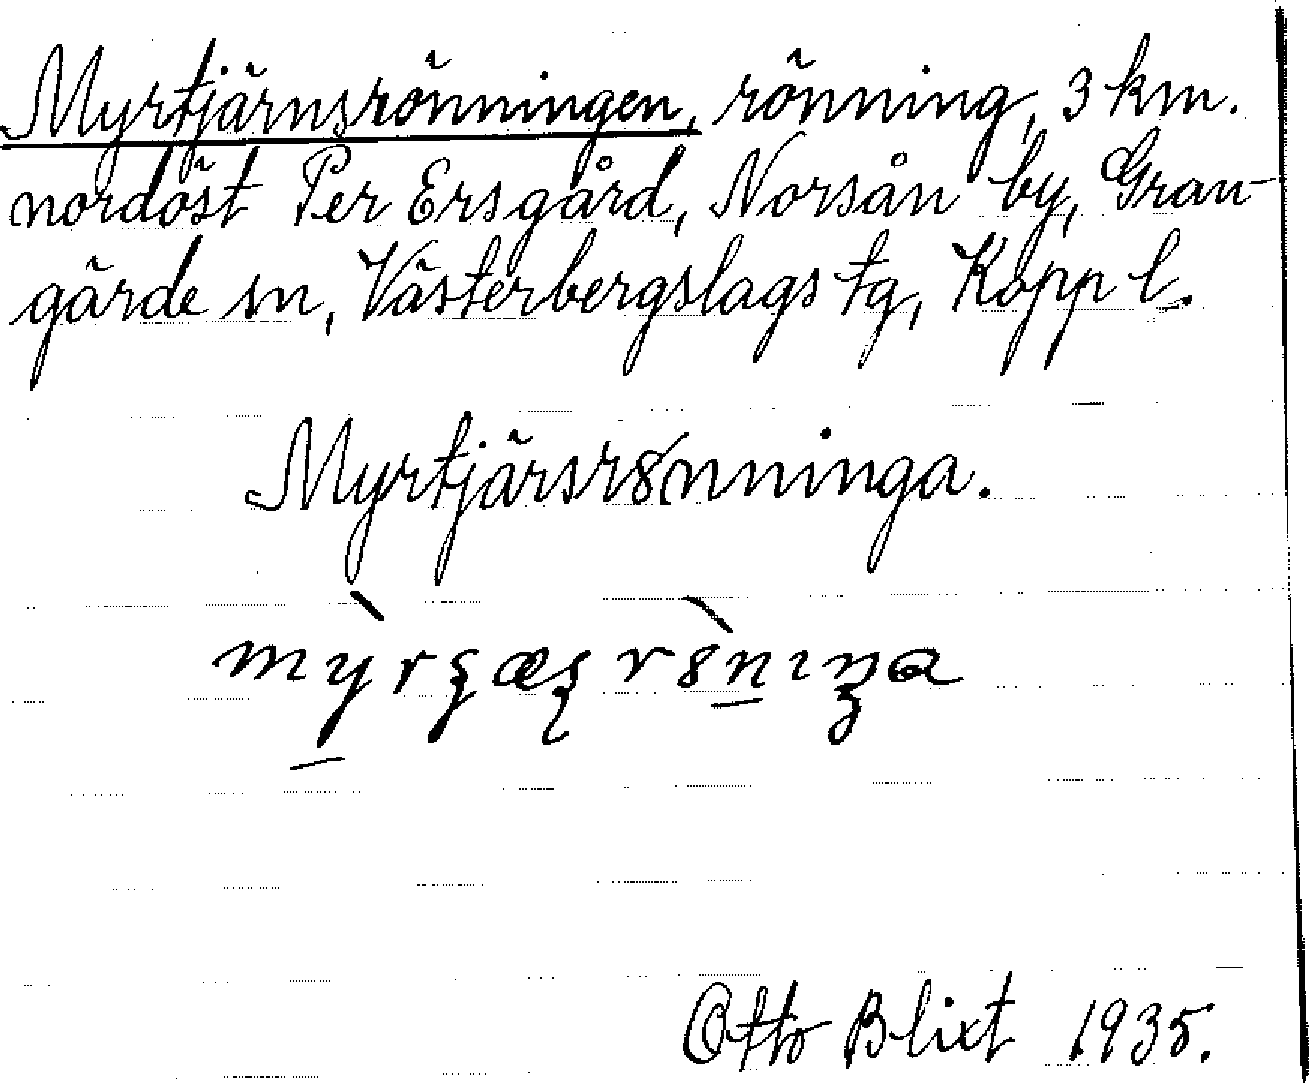 Myrtjärnsrönningen, rönning, 3 km.
nordöst Per Ersgård, Norsån by, Gran-
gärde sn, Västerbergslags tg, Kopp l.
Myrtjärsr8nninga.
Otto Blixt 1935.